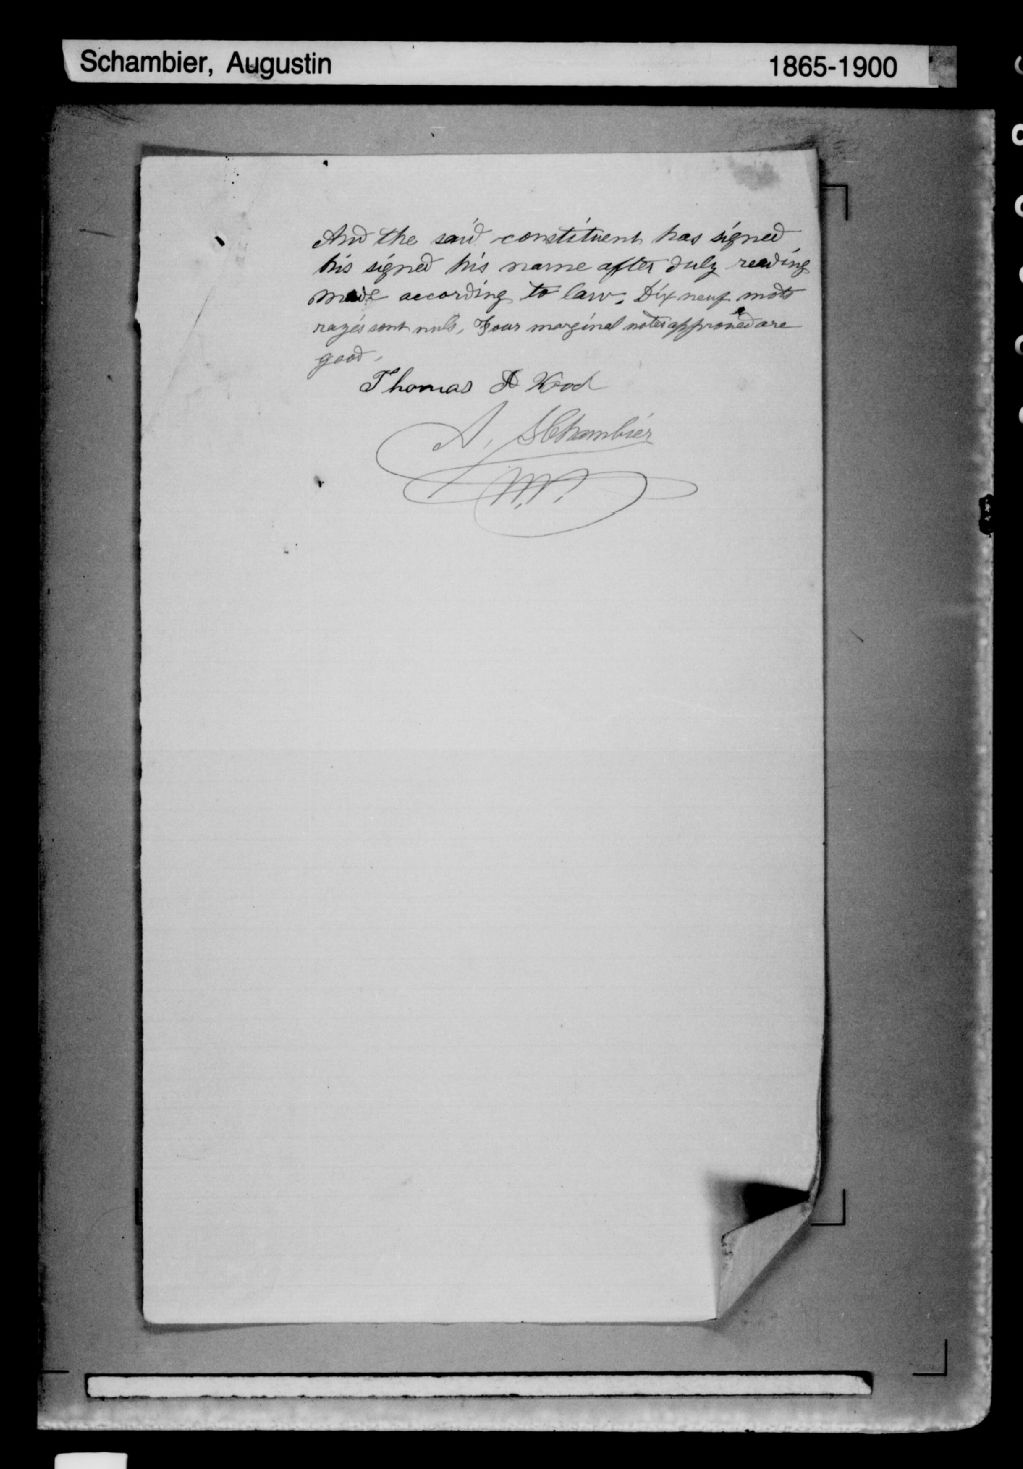 Schambier, Augustin 1865-1900
And the said constituent has signed
his signed his name after duly reading
made according to law. Dix neuf mots
rayés sont nuls, Four marginal notes approved are
good.
Thomas A
A. SChambier
N.P.